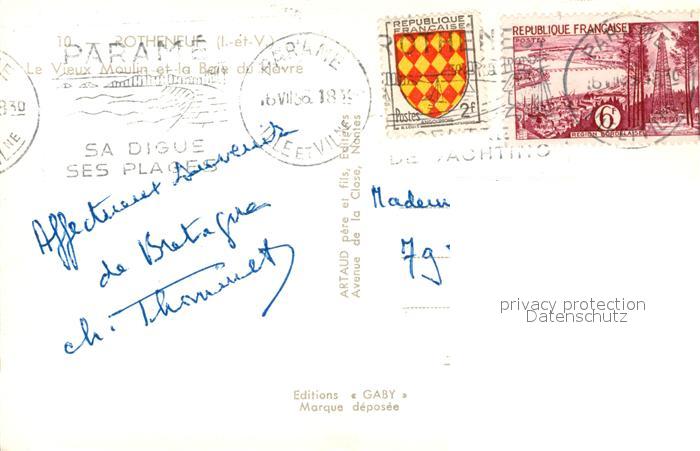 10. ROTHENEUF (I.-et-V.)
Le Vieux Moulin et la Baie du Havre
PARAMÉ
SA DIGUE
SES PLAGES
PARAMÉ
16 VII 56. 18 30
ILLE ET VILNE
REPUBLIQUE
FRANÇAISE
Postes 2f
ANGOUMOIS
REPUBLIQUE FRANÇAISE
POSTES
6F
REGION BORDELAISE
DE YACHTING
Affectueux Souvenirs
de Bretagne
ch.
ARTAUD père et fils, Editeurs
Avenue de la Close, Nantes
7
privacy protection
Datenschutz
Editions « GABY »
Marque déposée